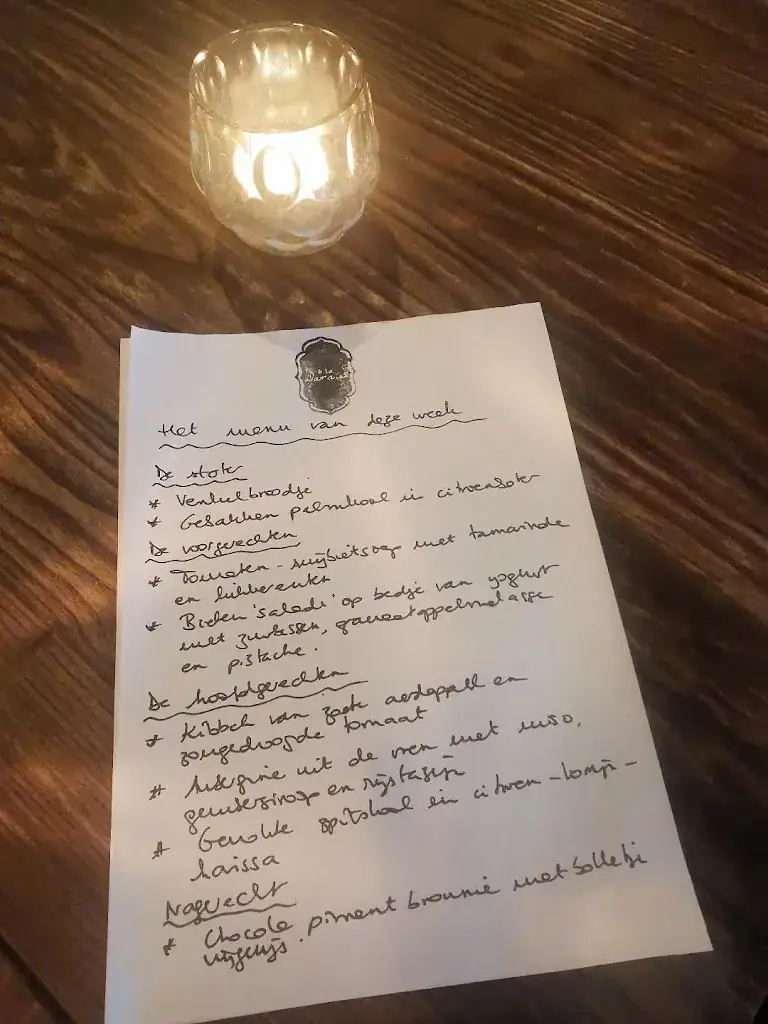 Het menu van deze week
De start
* Venkelbroodje
* Gebakken palmkool in citroenboter
De voorgerechten
* Tomaten - snijbietsoep met tamarinde
en kikkererwten
* Bieten 'salade' op bedje van yoghurt
met zuurbessen, granaatappelmelasse
en pistache.
De hoofdgerechten
* Kibbeh van zoete aardappel en
zongedroogde tomaat
* Aubergine uit de oven met miso,
gembersiroop en rijstazijn
* Gerookte spitskool in citroen -
harissa
Nagerecht
* Chocola piment brownie met bolletje
vijgenijs.